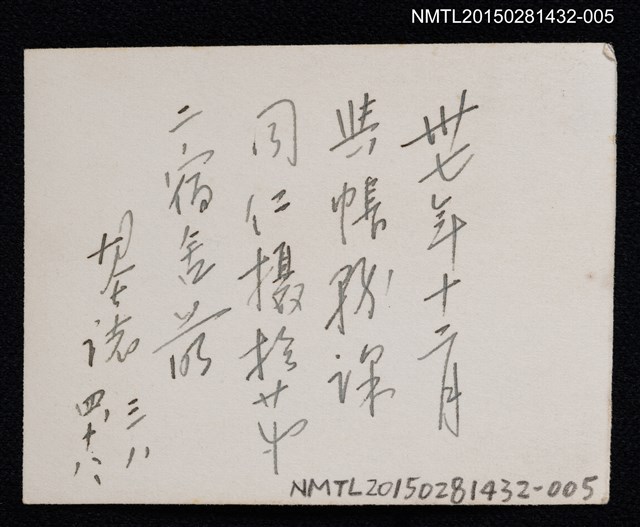 NMTL20150281432-005
卅七年十二月
與帳務課
同仁攝於第
二宿舍前
誌
三八
四、十八、
NMTL20150281432-005